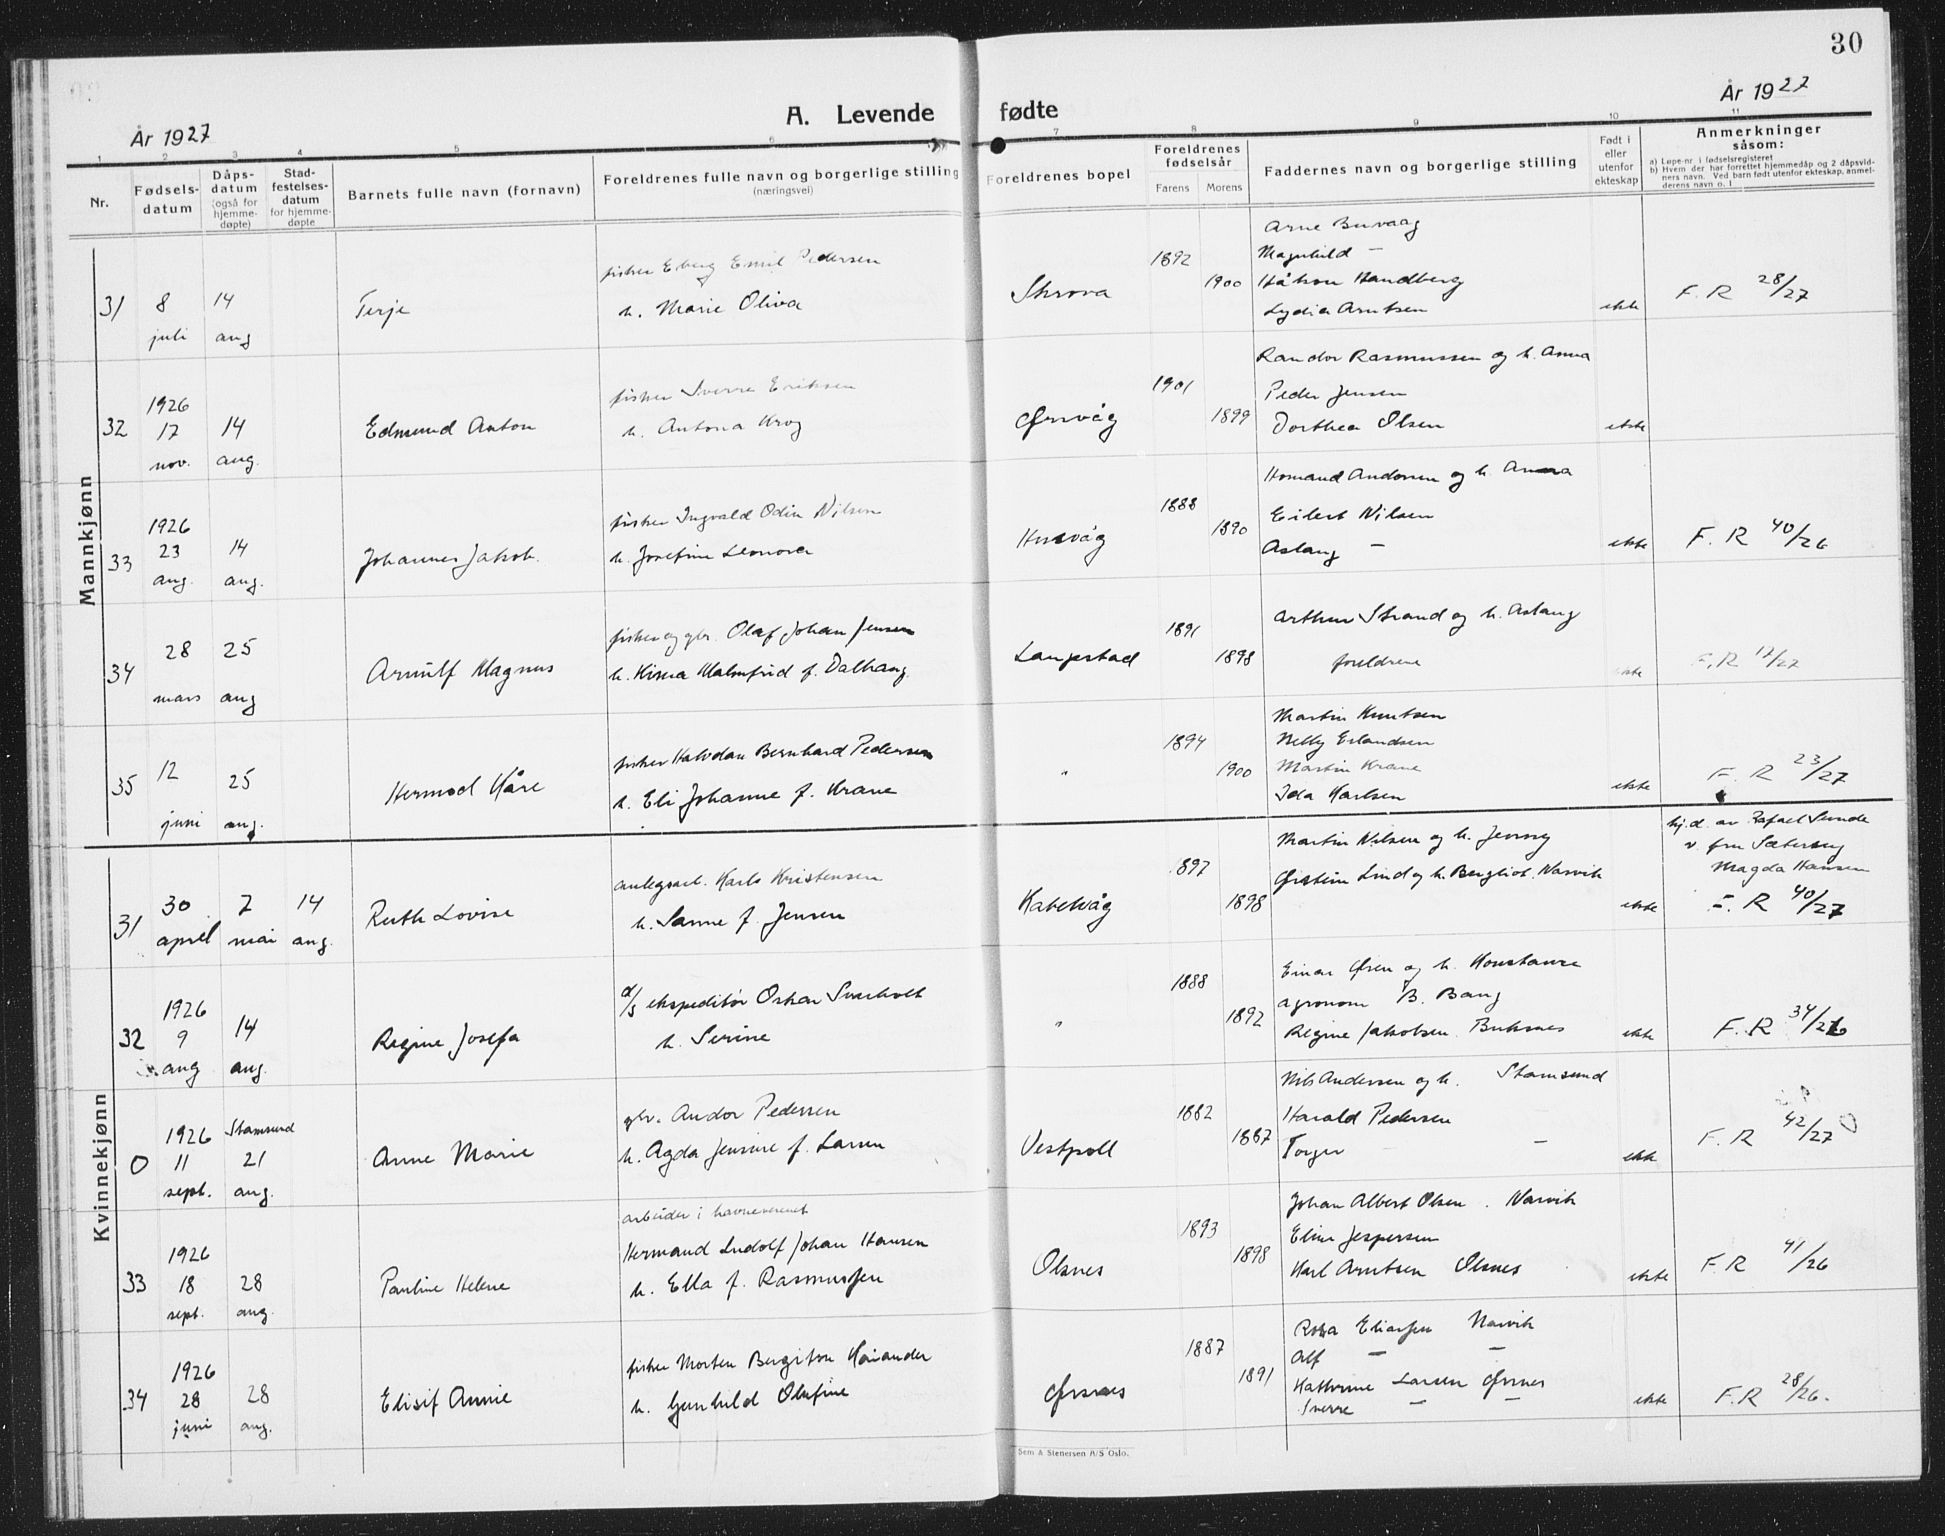 30
År 1927
A. Levende fødte
År 1927
1 2 3 4 5 6 7 8 9 10 11
Nr.
Fødsels-
datum
Dåps-
datum
(også for
hjemme-
døpte)
Stad-
festelses-
datum
for hjemme-
døpte
Barnets fulle navn (fornavn)
Foreldrenes fulle navn og borgerlige stilling
(næringsvei)
Foreldrenes bopel
Foreldrenes
fødselsår
Farens Morens
Faddernes navn og borgerlige stilling
Født i
eller
utenfor
ekteskap
Anmerkninger
såsom:
a) Løpe-nr. i fødselsregisteret
b) Hvem der har forrettet hjemmedåp og 2 dåpsvid-
ners navn. Ved barn født utenfor ekteskap, anmel-
derens navn o. l
Mannkjønn
31 8 juli 14 aug
Terje
fisker Eberg Emil Pedersen
h. Marie Oliva
Skrova
1892 1900
Arne Buvaag
Magnhild —
Håkon Sandberg
Lydia Arntsen
ekte
F. R 28/27
32 1926 17 nov. 14 aug.
Edmund Anton
fisker Sverre Eriksen
h. Antona Krog
Ørsvåg
1901 1899
Randor Rasmussen og h. Anna
Peder Jensen
Dorthea Olsen
ekte
33 1926 23 aug. 14 aug.
Johannes Jakob.
fisker Ingvald Odin Nilsen
h. Josefine Leonora
Husvåg
1888 1890
Andersen og h. Anna
Eilert Nilsen
Aslaug —
ekte
F. R 40/26
34 28 mars 25 aug
Arnulf Magnus
fisker og gbr. Olaf Johan Jensen
h. Kisma Malmfrid f. Dalhaug.
Laupstad
1891 1898
Arthur Strand og h. Aslaug
foreldrene
ekte
F, R 17/27
35 12 juni 25 aug.
Hermod Kåre
fisker Halvdan Bernhard Pedersen
h. Eli Johanne f. Krane
"
1894 1900
Martin Knutsen
Nelly Erlandsen
Martin Krane
Ida Karlsen
ekte
F. R 23/27
Kvinnekjønn
31 30 april 7 mai 14 aug.
Ruth Lovise
anlegsarb. Karls Kristensen
h. Sanne f. Jensen
Kabelvåg
1897 1898
Martin Nilsen og h. Jenny
Øistein Lind og h. Bergliot. Narvik
ekte
hj.d. av Rafael Sunde
v. fru Sæterøy
Magda Hansen
F. R 40/27
32 1926 9 aug 14 aug.
Regine Josefa
d/s ekspeditør Oskar Svarholt
h. Serine
"
1888 1892
Einar Øien og h. Konstanse
agronom B. Bang
Regine Jakobsen. Buksnes
ekte
F. R 34/26
0 1926 11 sept. Stamsund 21 aug.
Anne Marie
gbr. Andor Pedersen
h. Agda Jensine f. Larsen
Vestpoll
1882 1887
Nils Andersen og h. Stamsund
Harald Pedersen
Torger — —
ekte
F. R 42/27 0
33 1926 18 sept. 28 aug.
Pauline Helene
arbeider i havnevesenet
Hermand Ludolf Johan Hansen
h. Ella f. Rasmussen
Olsnes
1893 1898
Johan Albert Olsen. Narvik
Eline Jespersen
Karl Arntsen Olsnes
ekte
F. R 41/26
34 1926 28 juni 28 aug.
Elisif Annie
fisker Morten Bergiton Kaiander
h. Gunhild Olufine
Ørsnes
1887 1891
Rosa Eliassen Narvik
Alf — —
Kathrine Larsen Ørsnes
Sverre — —
ekte
F. R 28/26.
Sem & Stenersen A/S Oslo.